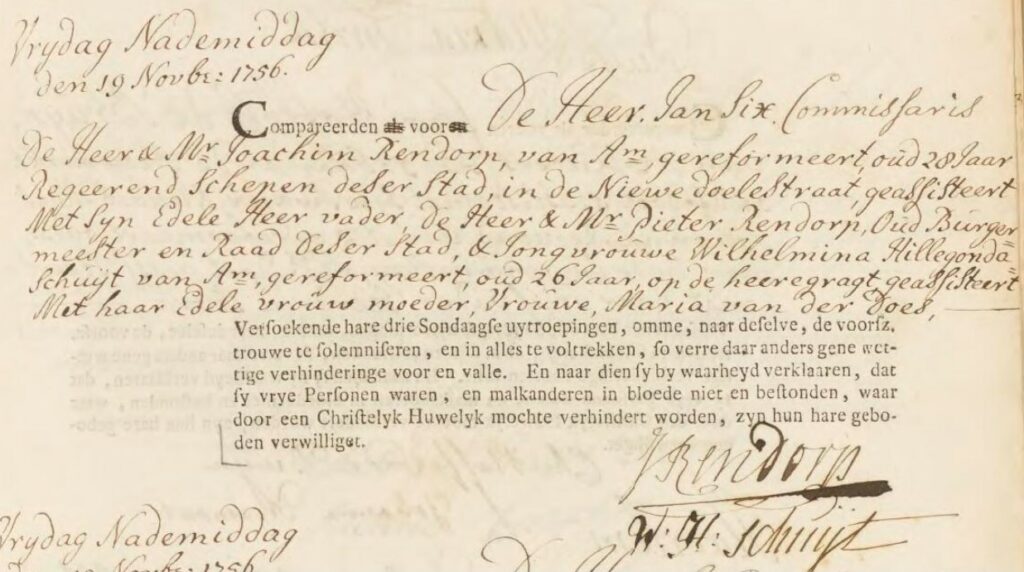 Vrydag Nademiddag
den 19 Novbr: 1756.
Compareerden als vooren De Heer. Jan Six. Commissaris
De Heer & Mr Joachim Rendorp, van Am, gereformeert, oud 28 Jaar
Regeerend Schepen deser Stad, in de Niewe doelestraat, geassisteert
Met Syn Edele Heer vader, de Heer & Mr Pieter Rendorp, Oud Burger=
meester en Raad Deser Stad, & Jongvrouwe Wilhelmina Hillegonda=
Schuijt van Am, gereformeert, oud 26 Jaar, op de heeregragt, geassisteert
Met haar Edele vrouw moeder, Vrouwe, Maria van der Does,
Versoekende hare drie Sondaagse uytroepingen, omme, naar deselve, de voorsz.
trouwe te solemniseren, en in alles te voltrekken, so verre daar anders gene wet-
tige verhinderinge voor en valle. En naar dien sy by waarheyd verklaaren, dat
sy vrye Personen waren, en malkanderen in bloede niet en bestonden, waar
door een Christelyk Huwelyk mochte verhindert worden, zyn hun hare gebo-
den verwilliget.
J Rendorp
W: H: Schuijt
Vrydag Nademiddag
1756